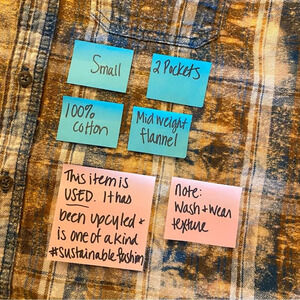 Small
2 Pockets
100%
cotton
Midweight
flannel
This item is
USED. It has
been upcyled +
is one of a kind
#sustainablefashion
note:
Wash + Wear
texture